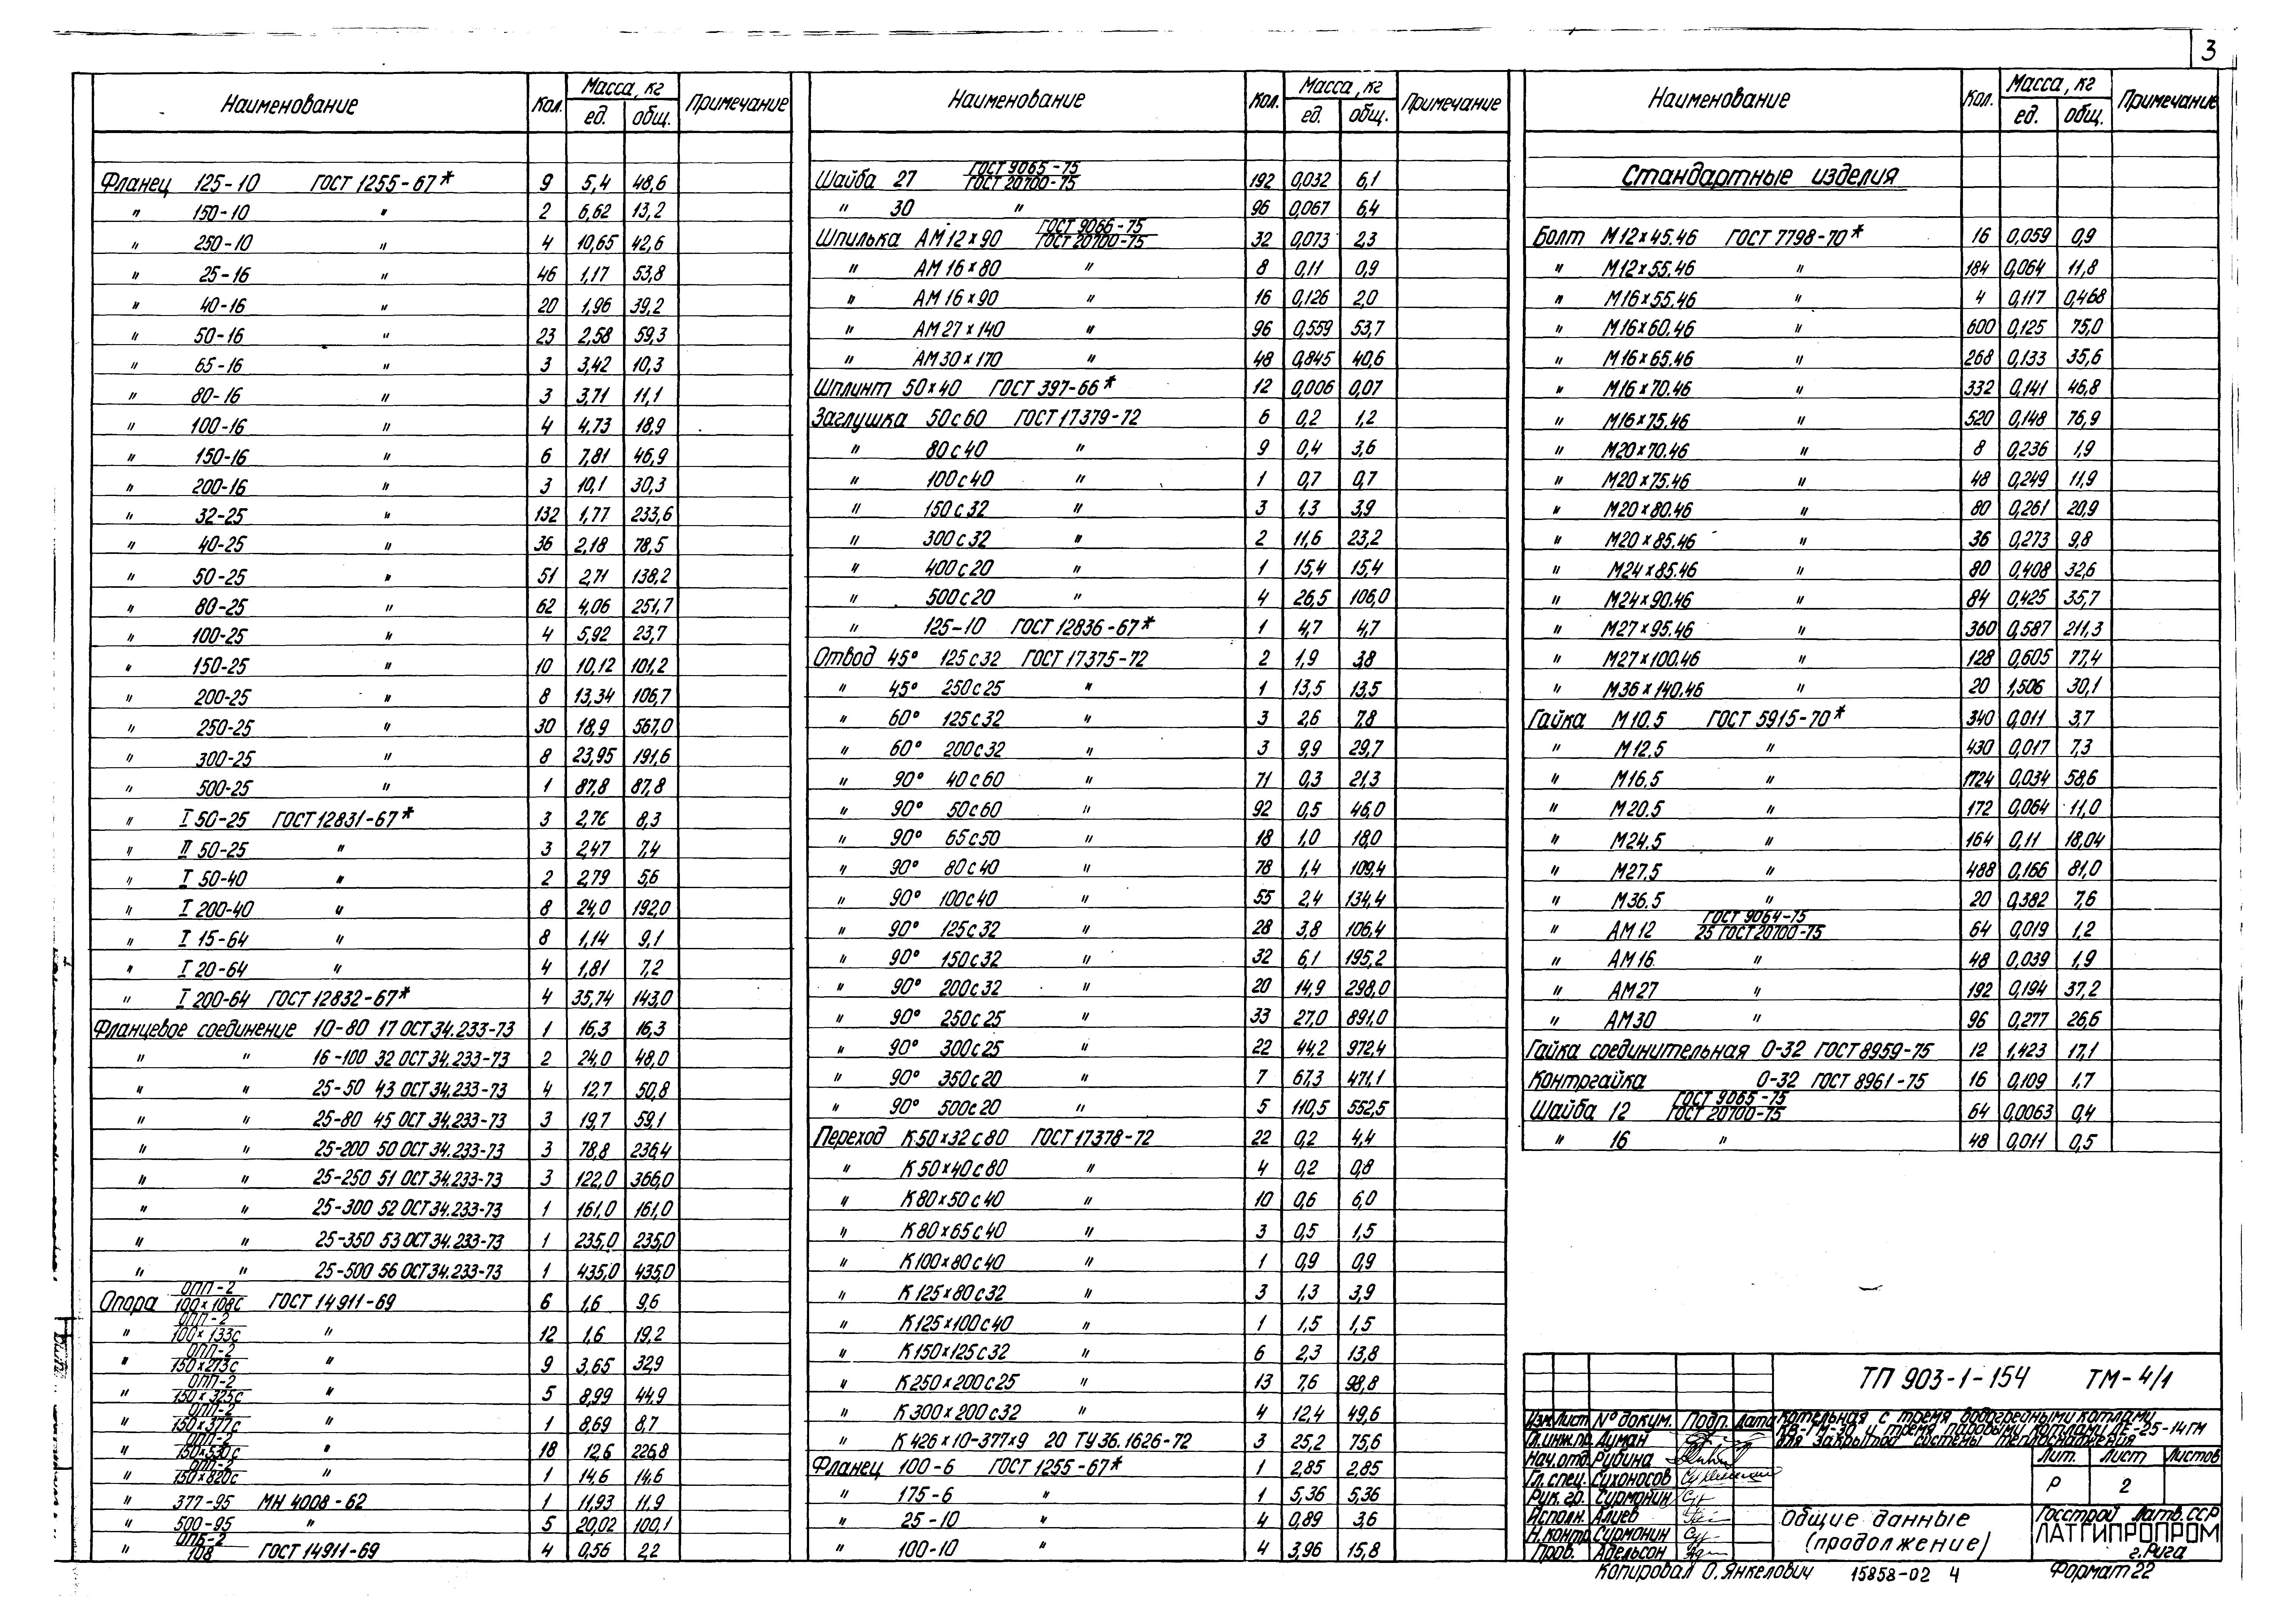 3
Наименование Кол. Масса, кг Примечание
ед. общ.
Фланец 125-10 ГОСТ 1255-67* 9 5,4 48,6
" 150-10 " 2 6,62 13,2
" 250-10 " 4 10,65 42,6
" 25-16 " 46 1,17 53,8
" 40-16 " 20 1,96 39,2
" 50-16 " 23 2,58 59,3
" 65-16 " 3 3,42 10,3
" 80-16 " 3 3,71 11,1
" 100-16 " 4 4,73 18,9
" 150-16 " 6 7,81 46,9
" 200-16 " 3 10,1 30,3
" 32-25 " 132 1,77 233,6
" 40-25 " 36 2,18 78,5
" 50-25 " 51 2,71 138,2
" 80-25 " 62 4,06 251,7
" 100-25 " 4 5,92 23,7
" 150-25 " 10 10,12 101,2
" 200-25 " 8 13,34 106,7
" 250-25 " 30 18,9 567,0
" 300-25 " 8 23,95 191,6
" 500-25 " 1 87,8 87,8
" I 50-25 ГОСТ 12831-67* 3 2,76 8,3
" II 50-25 " 3 2,47 7,4
" I 50-40 " 2 2,79 5,6
" I 200-40 " 8 24,0 192,0
" I 15-64 " 8 1,14 9,1
" I 20-64 " 4 1,81 7,2
" I 200-64 ГОСТ 12832-67* 4 35,74 143,0
Фланцевое соединение 10-80 17 ОСТ 34.233-73 1 16,3 16,3
" " 16-100 32 ОСТ 34.233-73 2 24,0 48,0
" " 25-50 43 ОСТ 34.233-73 4 12,7 50,8
" " 25-80 45 ОСТ 34.233-73 3 19,7 59,1
" " 25-200 50 ОСТ 34.233-73 3 78,8 236,4
" " 25-250 51 ОСТ 34.233-73 3 122,0 366,0
" " 25-300 52 ОСТ 34.233-73 1 161,0 161,0
" " 25-350 53 ОСТ 34.233-73 1 235,0 235,0
" " 25-500 56 ОСТ 34.233-73 1 435,0 435,0
Опора ОПП-2/100×108с ГОСТ 14911-69 6 1,6 9,6
" ОПП-2/100×133с " 12 1,6 19,2
" ОПП-2/150×273с " 9 3,65 32,9
" ОПП-2/150×325с " 5 8,99 44,9
" ОПП-2/150×377с " 1 8,69 8,7
" ОПП-2/150×530с " 18 12,6 226,8
" ОПП-2/150×820с " 1 14,6 14,6
" 377-95 МН 4008-62 1 11,93 11,9
" 500-95 " 5 20,02 100,1
" ОПБ-2/108 ГОСТ 14911-69 4 0,56 2,2
Наименование Кол. Масса, кг Примечание
ед. общ.
Шайба 27 ГОСТ 9065-75/ГОСТ 20700-75 192 0,032 6,1
" 30 " 96 0,067 6,4
Шпилька АМ12×90 ГОСТ 9066-75/ГОСТ 20700-75 32 0,073 2,3
" АМ16×80 " 8 0,11 0,9
" АМ16×90 " 16 0,126 2,0
" АМ27×140 " 96 0,559 53,7
" АМ30×170 " 48 0,845 40,6
Шплинт 50×40 ГОСТ 397-66* 12 0,006 0,07
Заглушка 50с60 ГОСТ 17379-72 6 0,2 1,2
" 80с40 " 9 0,4 3,6
" 100с40 " 1 0,7 0,7
" 150с32 " 3 1,3 3,9
" 300с32 " 2 11,6 23,2
" 400с20 " 1 15,4 15,4
" 500с20 " 4 26,5 106,0
" 125-10 ГОСТ 12836-67* 1 4,7 4,7
Отвод 45° 125с32 ГОСТ 17375-72 2 1,9 3,8
" 45° 250с25 " 1 13,5 13,5
" 60° 125с32 " 3 2,6 7,8
" 60° 200с32 " 3 9,9 29,7
" 90° 40с60 " 71 0,3 21,3
" 90° 50с60 " 92 0,5 46,0
" 90° 65с50 " 18 1,0 18,0
" 90° 80с40 " 78 1,4 109,4
" 90° 100с40 " 55 2,4 134,4
" 90° 125с32 " 28 3,8 106,4
" 90° 150с32 " 32 6,1 195,2
" 90° 200с32 " 20 14,9 298,0
" 90° 250с25 " 33 27,0 891,0
" 90° 300с25 " 22 44,2 972,4
" 90° 350с20 " 7 67,3 471,1
" 90° 500с20 " 5 110,5 552,5
Переход К50×32с80 ГОСТ 17378-72 22 0,2 4,4
" К50×40с80 " 4 0,2 0,8
" К80×50с40 " 10 0,6 6,0
" К80×65с40 " 3 0,5 1,5
" К100×80с40 " 1 0,9 0,9
" К125×80с32 " 3 1,3 3,9
" К125×100с40 " 1 1,5 1,5
" К150×125с32 " 6 2,3 13,8
" К250×200с25 " 13 7,6 98,8
" К300×200с32 " 4 12,4 49,6
" К426×10-377×9 20 ТУ36.1626-72 3 25,2 75,6
Фланец 100-6 ГОСТ 1255-67* 1 2,85 2,85
" 175-6 " 1 5,36 5,36
" 25-10 " 4 0,89 3,6
" 100-10 " 4 3,96 15,8
Наименование Кол. Масса, кг Примечание
ед. общ.
Стандартные изделия
Болт М12×45.46 ГОСТ 7798-70* 16 0,059 0,9
" М12×55.46 " 184 0,064 11,8
" М16×55.46 " 4 0,117 0,468
" М16×60.46 " 600 0,125 75,0
" М16×65.46 " 268 0,133 35,6
" М16×70.46 " 332 0,141 46,8
" М16×75.46 " 520 0,148 76,9
" М20×70.46 " 8 0,236 1,9
" М20×75.46 " 48 0,249 11,9
" М20×80.46 " 80 0,261 20,9
" М20×85.46 " 36 0,273 9,8
" М24×85.46 " 80 0,408 32,6
" М24×90.46 " 84 0,425 35,7
" М27×95.46 " 360 0,587 211,3
" М27×100.46 " 128 0,605 77,4
" М36×140.46 " 20 1,506 30,1
Гайка М10.5 ГОСТ 5915-70* 340 0,011 3,7
" М12.5 " 430 0,017 7,3
" М16.5 " 1724 0,034 58,6
" М20.5 " 172 0,064 11,0
" М24.5 " 164 0,11 18,04
" М27.5 " 488 0,166 81,0
" М36.5 " 20 0,382 7,6
" АМ12 ГОСТ 9064-75/25 ГОСТ 20700-75 64 0,019 1,2
" АМ16 " 48 0,039 1,9
" АМ27 " 192 0,194 37,2
" АМ30 " 96 0,277 26,6
Гайка соединительная О-32 ГОСТ 8959-75 12 1,423 17,1
Контргайка О-32 ГОСТ 8961-75 16 0,109 1,7
Шайба 12 ГОСТ 9065-75/ГОСТ 20700-75 64 0,0063 0,4
" 16 " 48 0,011 0,5
ТП 903-1-154 ТМ-4/1
Изм. Лист № докум. Подп. Дата
Котельная с тремя водогрейными котлами
КВ-ГМ-30 и тремя паровыми котлами ДЕ-25-14ГМ
для закрытой системы теплоснабжения
Гл.инж.пр. Луман
Нач.отд. Рубина
Гл. спец. Сухоносов
Рук. гр. Сурмонин
Исполн. Алиев
Н.контр. Сурмонин
Пров. Адельсон
Лит. Лист Листов
Р 2
Общие данные
(продолжение)
Госстрой Латв.ССР
ЛАТГИПРОПРОМ
г.Рига
Копировал О.Янкелович 15858-02 4 Формат 22